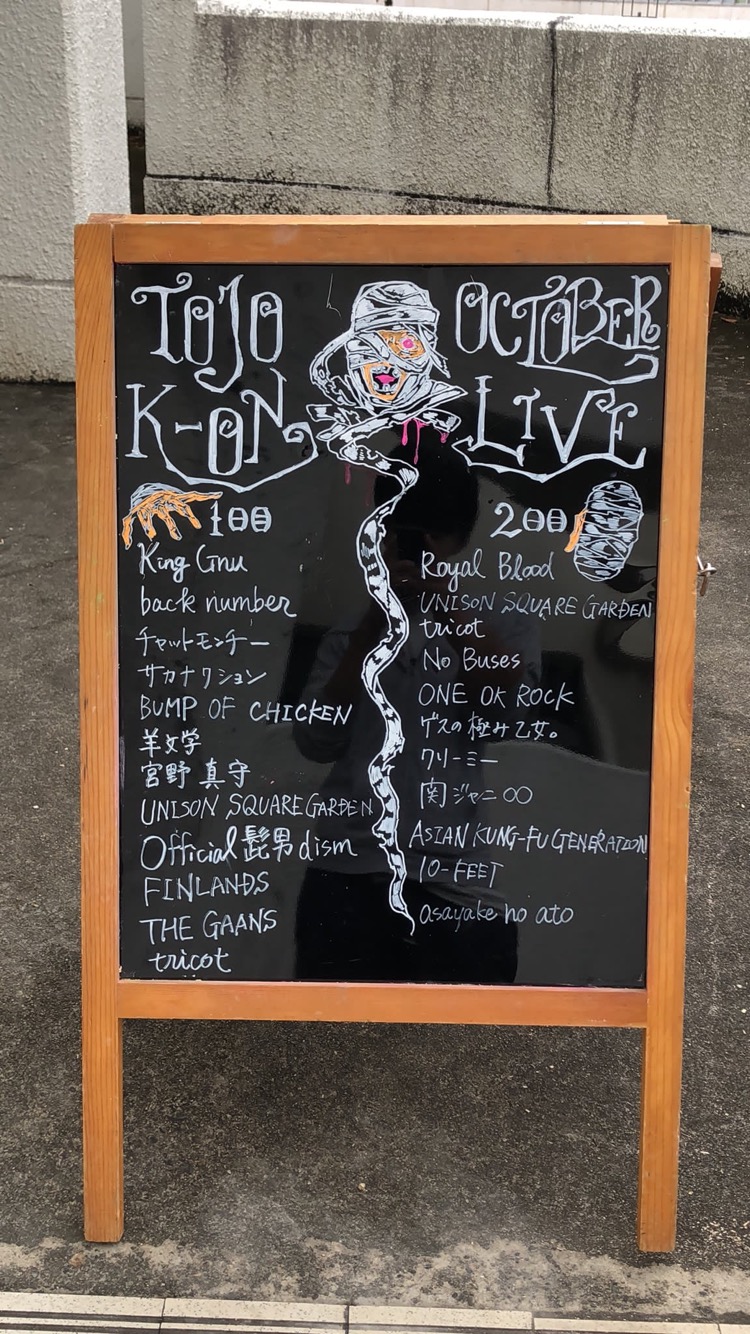 TOJO
K-ON
OCTOBER
LIVE
100
King Gnu
back number
チャットモンチー
サカナクション
BUMP OF CHICKEN
羊文学
宮野真守
UNISON SQUARE GARDEN
Official髭男dism
FINLANDS
THE GAANS
tricot
200
Royal Blood
UNISON SQUARE GARDEN
tricot
No Buses
ONE OK ROCK
ゲスの極み乙女。
クリーミー
関ジャニ∞
ASIAN KUNG-FU GENERATION
10-FEET
asayake no ato